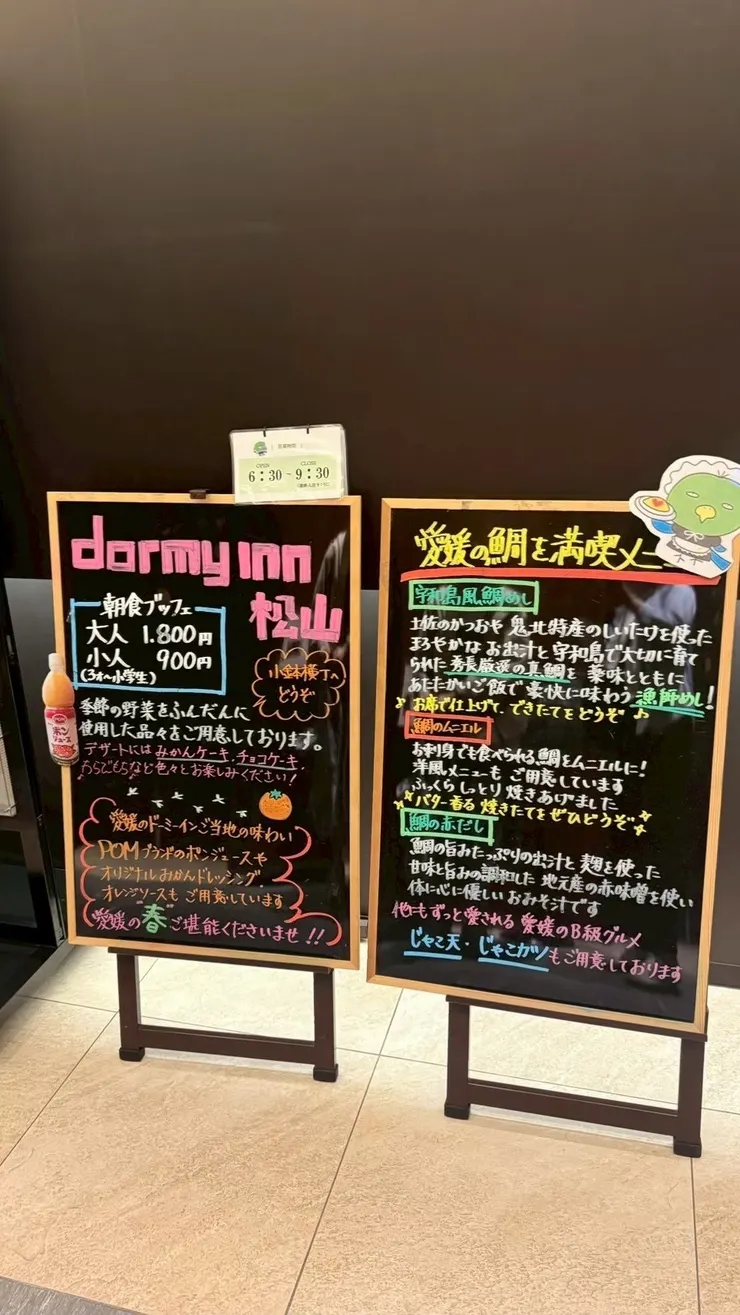 営業時間
OPEN CLOSE
6:30~9:30
dormy inn
松山
朝食ブッフェ
大人 1.800円
小人 900円
(3才~小学生)
小鉢横丁へ
どうぞ
ポン
ジュース
季節の野菜をふんだんに
使用した品々をご用意しております。
デザートにはみかんケーキ、チョコケーキ、
わらびもちなど色々とお楽しみください!
愛媛のドーミーインご当地の味わい
POMブランドのポンジュースや
オリジナルみかんドレッシング、
オレンジソースもご用意しています
愛媛の"春"ご堪能くださいませ!!
愛媛の鯛を満喫メニ
宇和島風鯛めし
土佐のかつおや鬼北特産のしいたけを使った
まろやかなお出汁と宇和島で大切に育て
られた秀長厳選の真鯛を薬味とともに
あたたかいご飯で豪快に味わう漁師めし!
お席で仕上げて、できたてをどうぞ♪
鯛のムニエル
お刺身でも食べられる鯛をムニエルに!
洋風メニューもご用意しています
ふっくらしっとり焼きあげました
バター香る焼きたてをぜひどうぞ
鯛の赤だし
鯛の旨みたっぷりの出汁と麹を使った
甘味と旨みの調和した地元産の赤味噌を使い
体に心に優しいおみそ汁です
他にもずっと愛される愛媛のB級グルメ
じゃこ天・じゃこカツもご用意しております